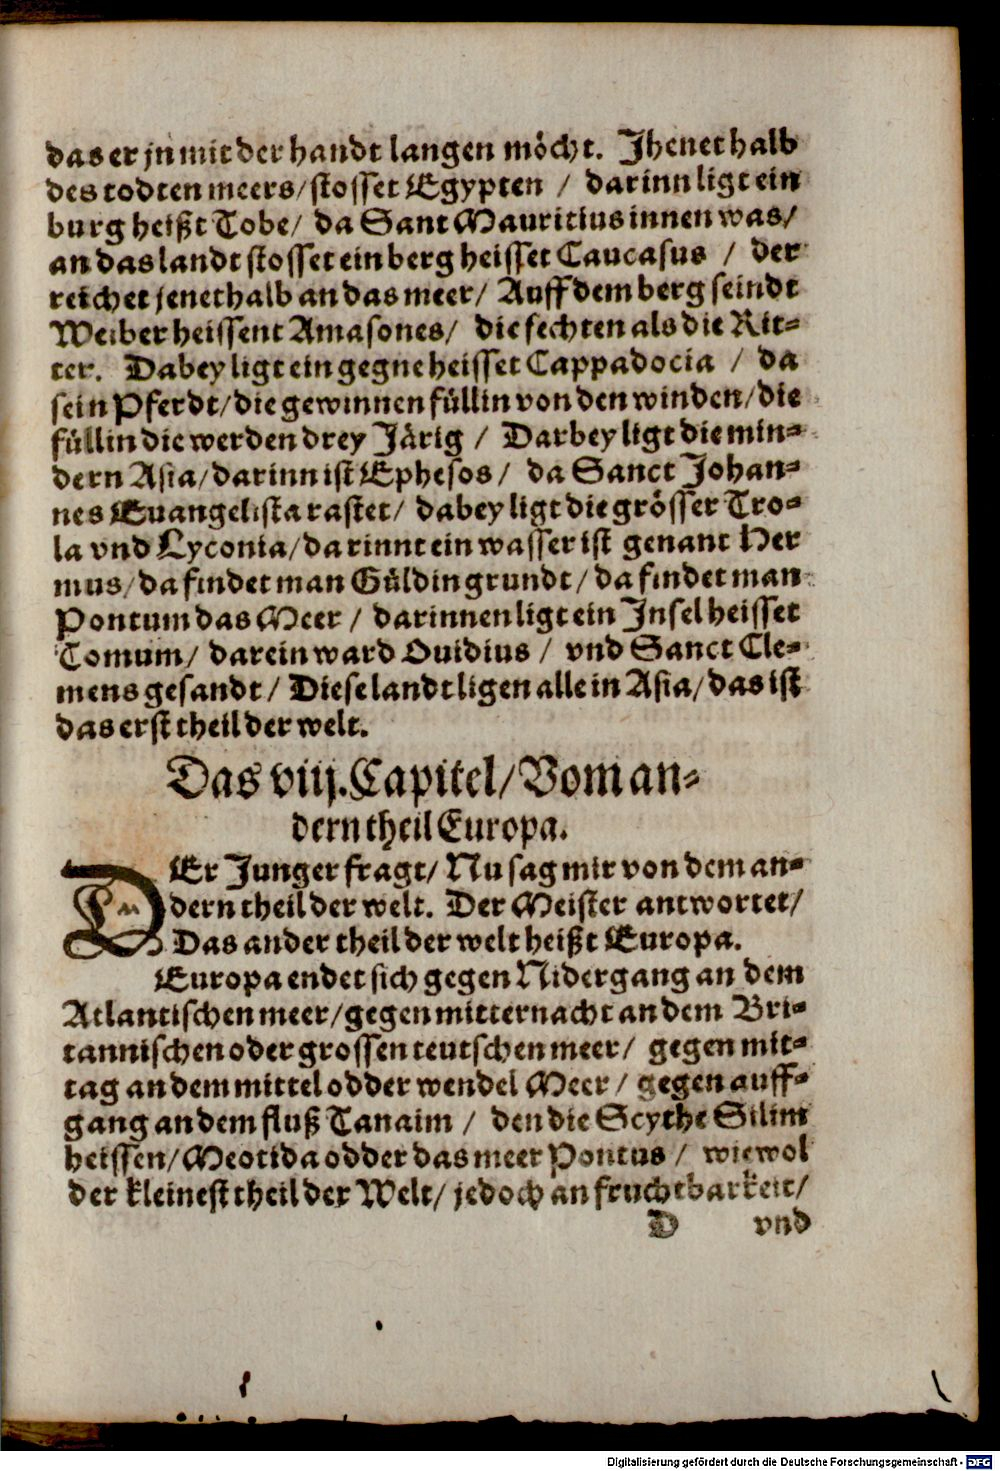 das er jn mit der handt langen möcht. Jhenet halb
des todten meers/ stosset Egypten / darinn ligt ein
burg heißt Tobe/ da Sant Mauritius innen was/
an das landt stosset ein berg heisset Caucasus / der
reichet jenethalb an das meer/ Auff dem berg seindt
Weiber heissent Amasones/ die fechten als die Rit-
ter. Dabey ligt ein gegne heisset Cappadocia / da
sein Pferdt/ die gewinnen füllin von den winden/ die
füllin die werden drey Järig / Darbey ligt die min-
dern Asia/ darinn ist Ephesos / da Sanct Johan-
nes Euangelista rastet/ dabey ligt die grösser Tro-
la vnd Lyconia/ darinnt ein wasser ist genant Her
mus/ da findet man Güldin grundt/ da findet man
Pontum das Meer / darinnen ligt ein Insel heisset
Tomum/ darein ward Ouidius / vnd Sanct Cle-
mens gesandt/ Diese landt ligen alle in Asia/ das ist
das erst theil der welt.
Das viij. Capitel/ Vom an-
dern theil Europa.
DEr Junger fragt/ Nu sag mir von dem an-
dern theil der welt. Der Meister antwortet/
Das ander theil der welt heißt Europa.
Europa endet sich gegen Nidergang an dem
Atlantischen meer/ gegen mitternacht an dem Bri-
tannischen oder grossen teutschen meer/ gegen mit-
tag an dem mittel odder wendel Meer/ gegen auff-
gang an dem fluß Tanaim / den die Scythe Silim
heissen/ Meotida odder das meer Pontus / wiewol
der kleinest theil der Welt/ jedoch an fruchtbarkeit/
D vnd
Digitalisierung gefördert durch die Deutsche Forschungsgemeinschaft - DFG